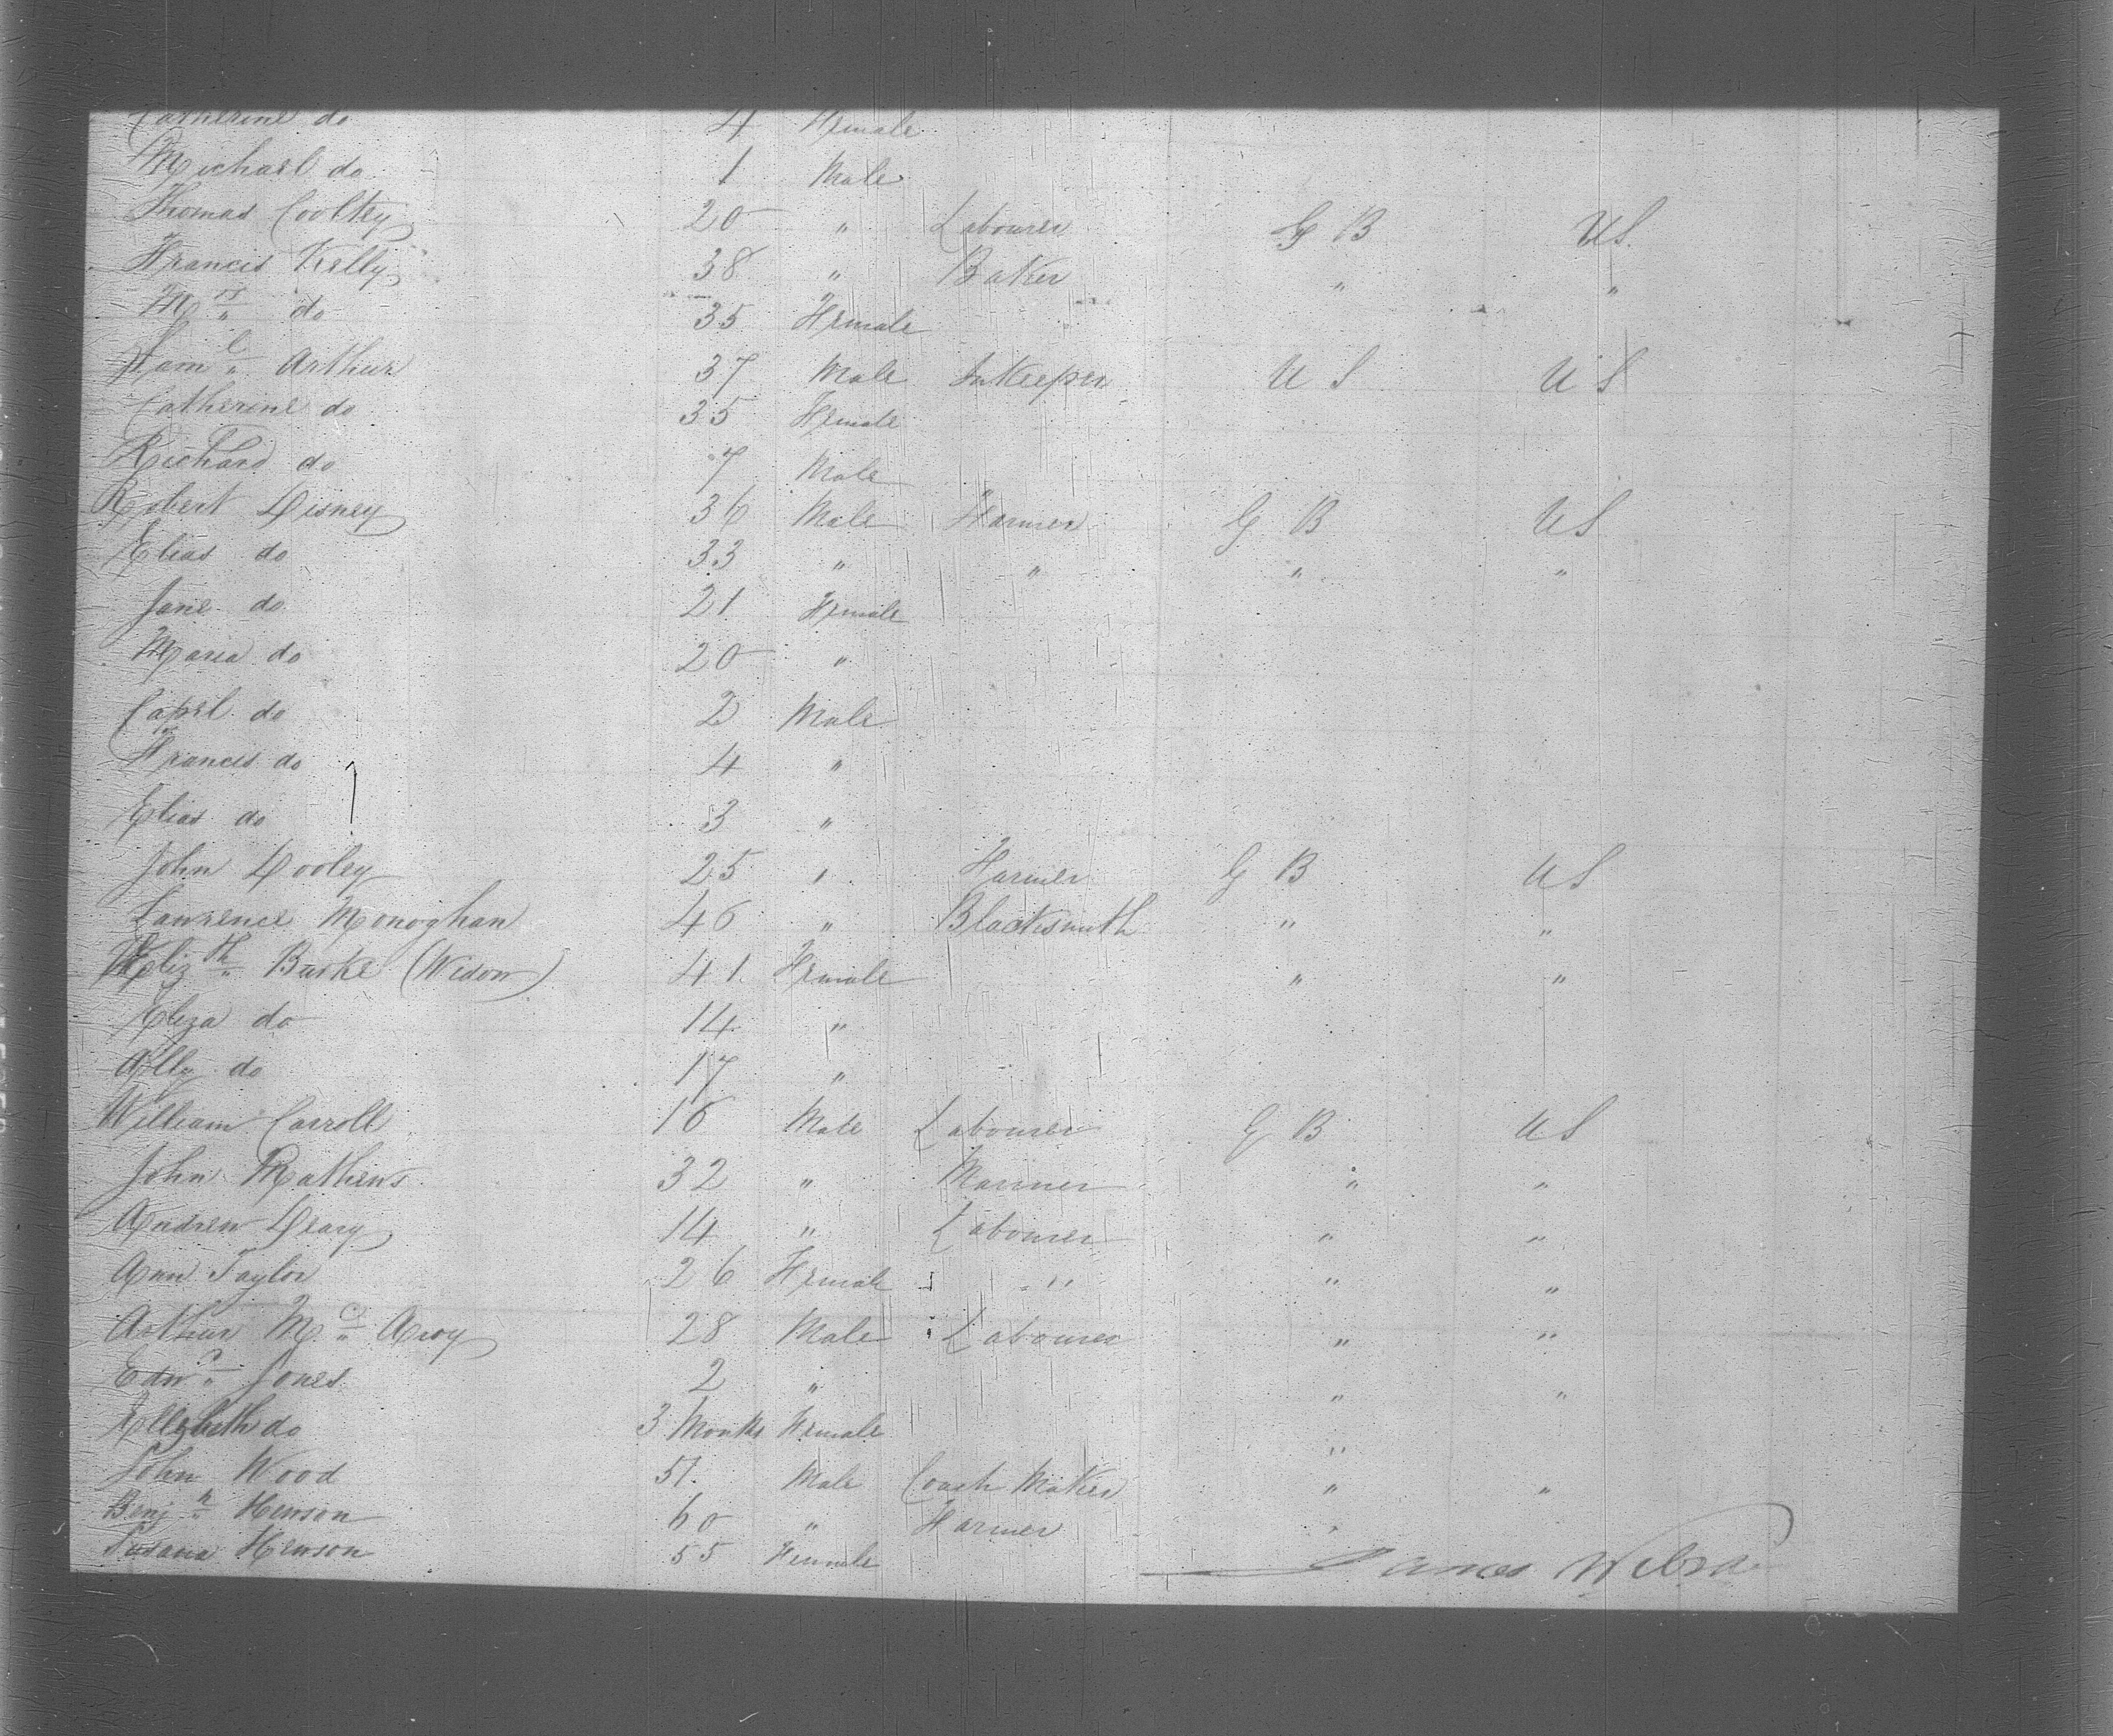 Catherine do 4 Female
Michael do 1 Male
Thomas Cooltey 20 " Labourer G B U S.
Francis Kelly 38 " Baker " "
Mrs do 35 Female
Saml Arthur 37 Male InKeeper U S U S
Catherine do 35 Female
Richard do 7 Male
Robert Disney 36 Male Farmer G B U S
Elias do 33 " " " "
Jane do 21 Female
Maria do 20 "
do 2 Male
Francis do 4 "
Elias do 3 "
John Dooley 25 " Farmer G B U S
Lawrence Monoghan 46 " Blacksmith " "
Elizth Burke (Widow) 41 Female " "
Eliza do 14 "
Ally do 17 "
William Carroll 16 Male Labourer G B U S
John Mathews 32 " Mariner " "
Andrew Leary 14 " Labourer " "
Ann Taylor 26 Female " " "
Arthur Mc Avoy 28 Male Labourer " "
Edwd Jones 2 " " "
Ellzbeth do 3 Months Female "
John Wood 51. Male Coach Maker " "
Benjn Hewson 60 " Farmer "
Susana Hewson 55 Female
James